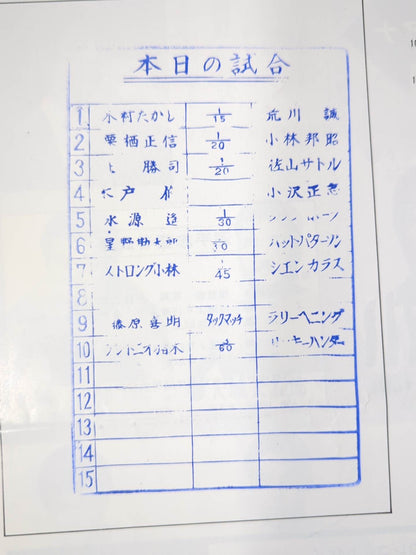 本日の試合
1 木村たかし 1/15 荒川 誠
2 栗栖正信 1/20 小林邦昭
3 勝司 1/20 佐山サトル
4 戸 小沢正志
5 永源 遙 1/30
6 星野勘太郎 30 ハットパターソン
7 ストロング小林 45 シエンカラス
8
9 藤原喜明 タッグマッチ ラリーヘニング
10 アントニオ猪木 60 ハンター
11
12
13
14
15